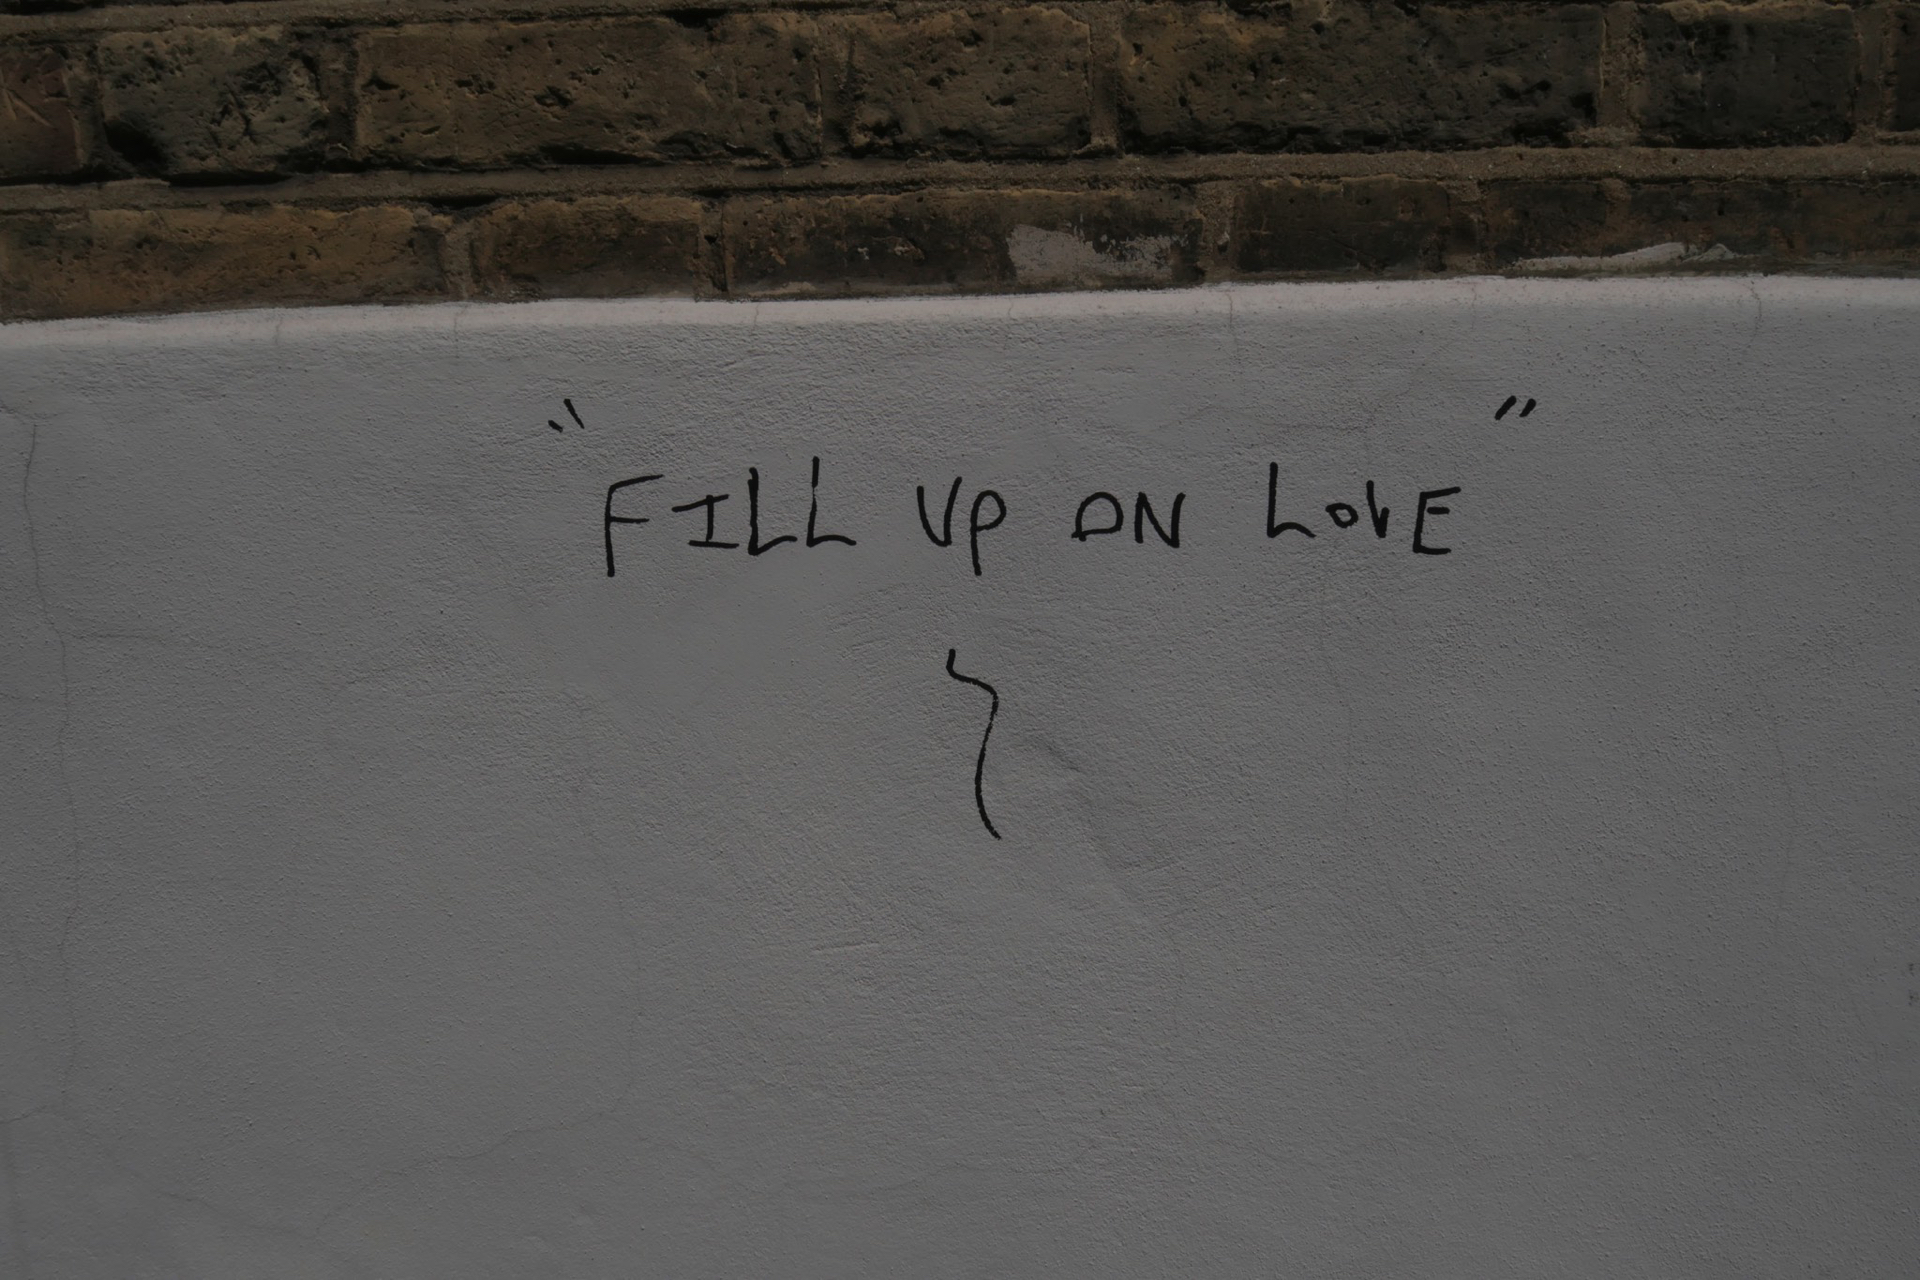 "FILL UP ON LOVE"